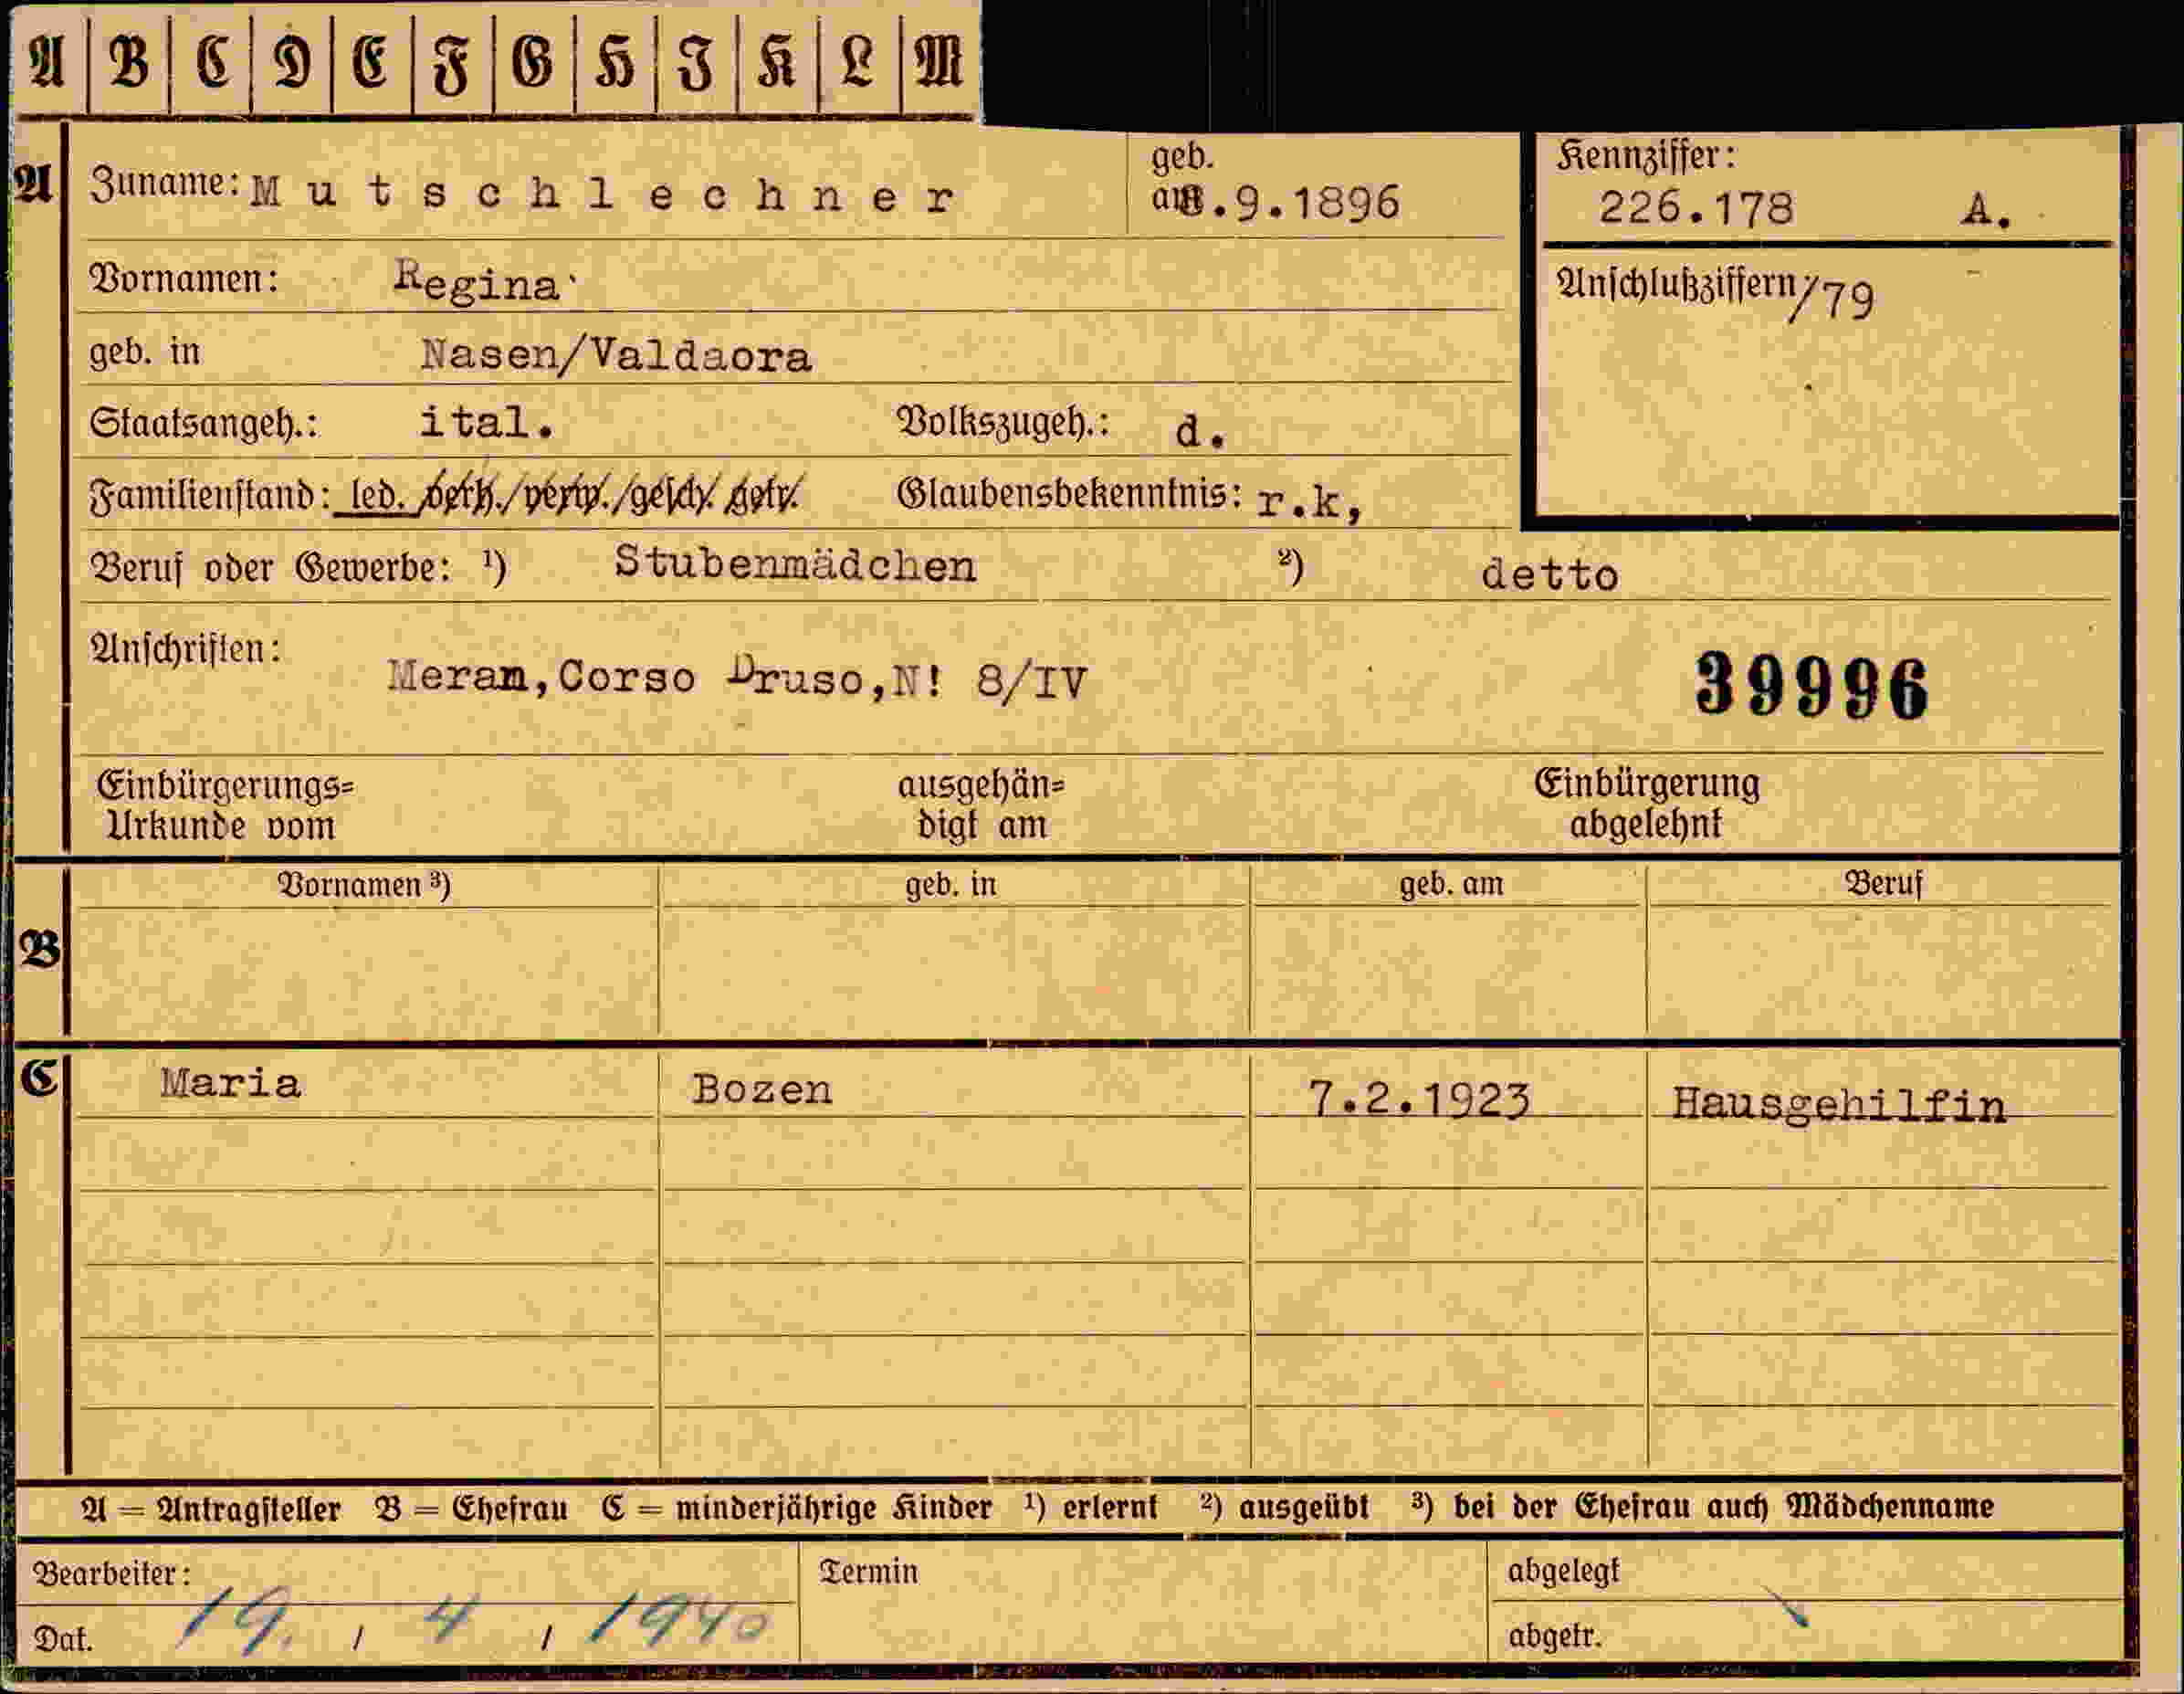 A B C D E F G H I K L M
A Zuname: Mutschlechner geb. am 8.9.1896 Kennziffer: 226.178 A.
Vornamen: Regina Anschlußziffern /79
geb. in Nasen/Valdaora
Staatsangeh.: ital. Volkszugeh.: d.
Familienstand: led. verh./verw./gesch. getr. Glaubensbekenntnis: r.k,
Beruf oder Gewerbe: ¹) Stubenmädchen ²) detto
Anschriften: Meran,Corso Druso,N! 8/IV 39996
Einbürgerungs= ausgehän= Einbürgerung
Urkunde vom digt am abgelehnt
Vornamen ³) geb. in geb. am Beruf
B
C Maria Bozen 7.2.1923 Hausgehilfin
A = Antragsteller B = Ehefrau C = minderjährige Kinder ¹) erlernt ²) ausgeübt ³) bei der Ehefrau auch Mädchenname
Bearbeiter: Termin abgelegt
Dat. 19. / 4 / 1940 abgetr.